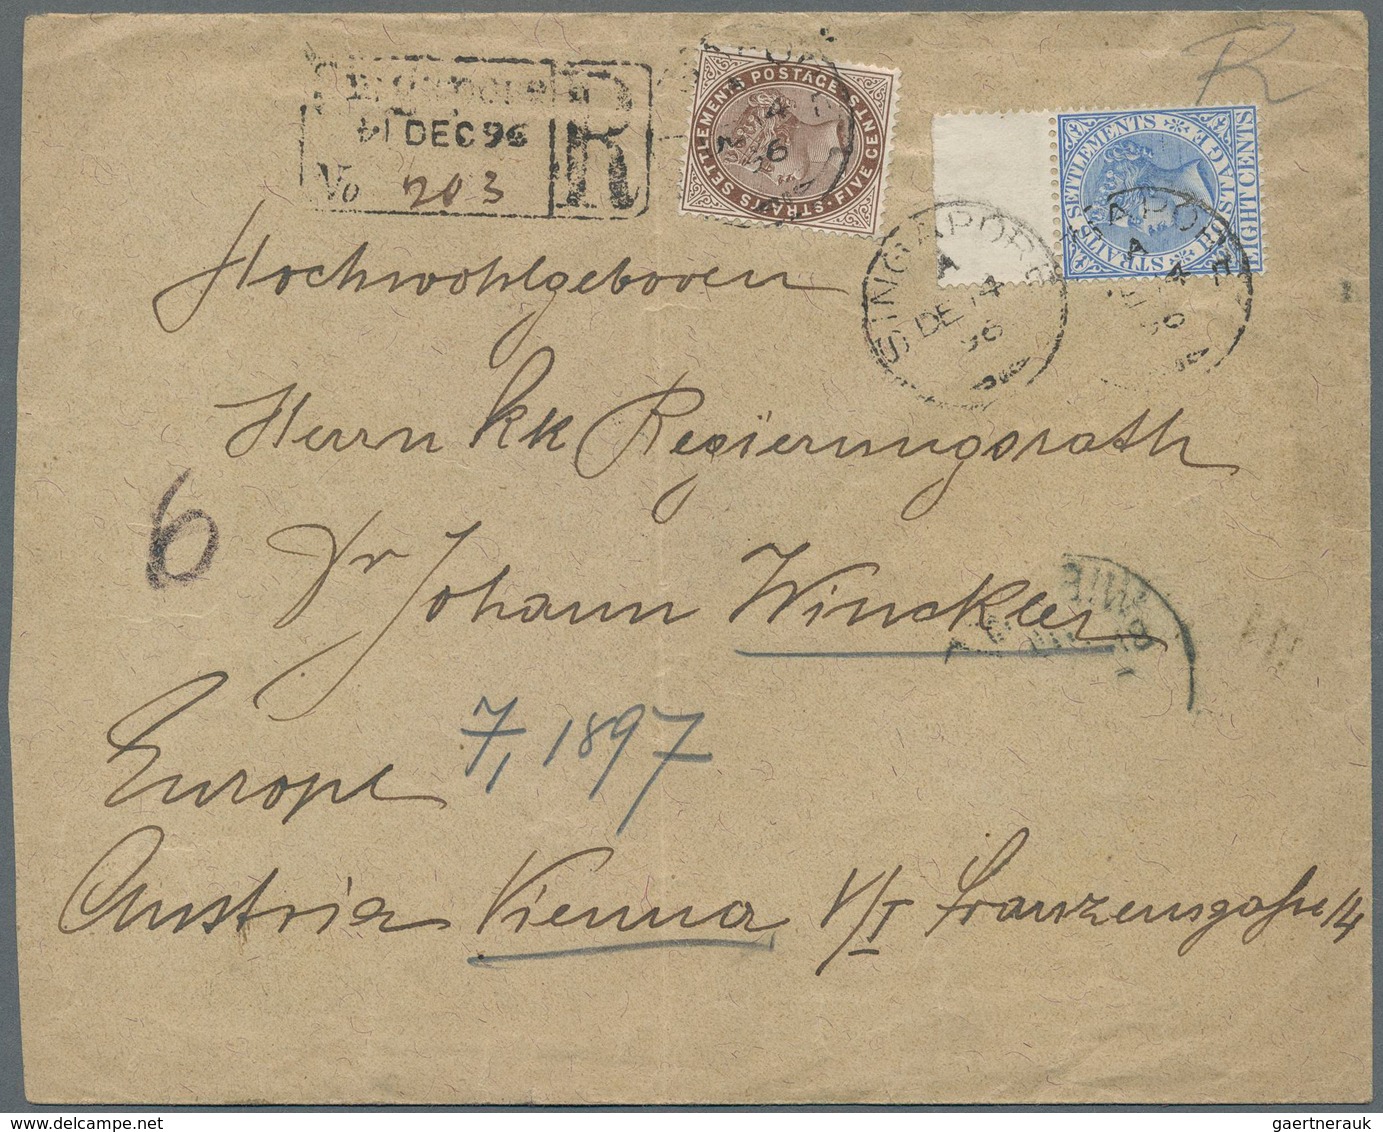 R
Singapore R
DEC 96
No 203
STRAITS SETTLEMENTS POSTAGE
FIVE CENTS
STRAITS SETTLEMENTS POSTAGE
EIGHT CENTS
SINGAPORE
A
DE 14
96
GAPORE
A
14
96
Hochwohlgeboren
Herrn kk Regierungsrath
6
Dr Johann Winckler
Europe 7, 1897
Austria Vienna V/I Franzensgasse 14
gaertnerauk